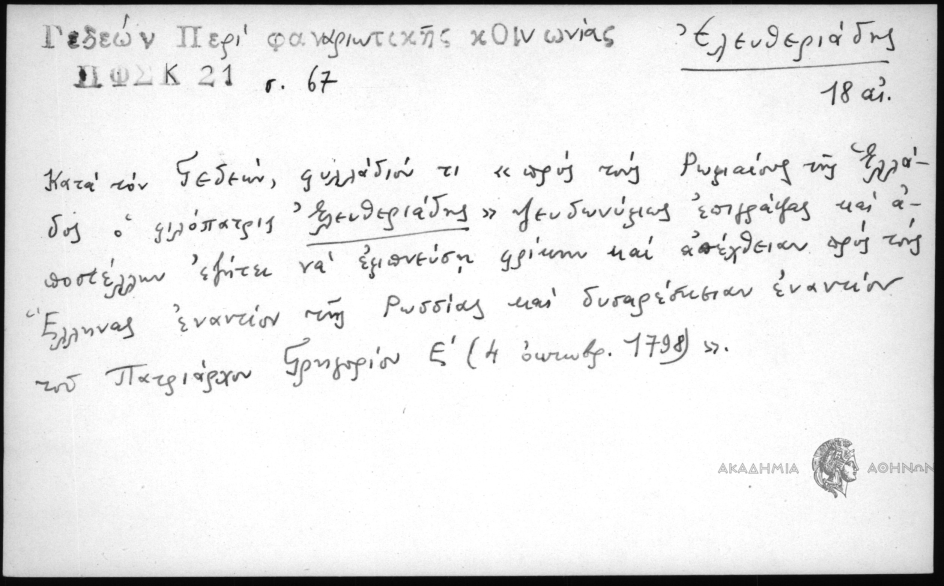 Γεδεών Περί φαναριωτικῆς κΟΙνωνίας
ΠΦΣΚ 21 σ. 67
Ἐλευθεριάδης
18 αἰ.
Κατά τόν Γεδεών, φυλλάδιόν τι « πρός τούς Ρωμαίους τῆς Ἑλλά-
δος ὁ φιλόπατρις Ἐλευθεριάδης » ψευδωνύμως ἐπιγράψας καί ἀ-
ποστέλλων ἐζήτει νά ἐμπνεύσῃ φρίκην καί ἀπέχθειαν πρός τούς
Ἕλληνας ἐναντίον τῆς Ρωσσίας καί δυσαρέσκειαν ἐναντίον
τοῦ Πατριάρχου Γρηγορίου Ε' (4 ὀκτωβρ. 1798) ».
ΑΚΑΔΗΜΙΑ ΑΘΗΝΩΝ